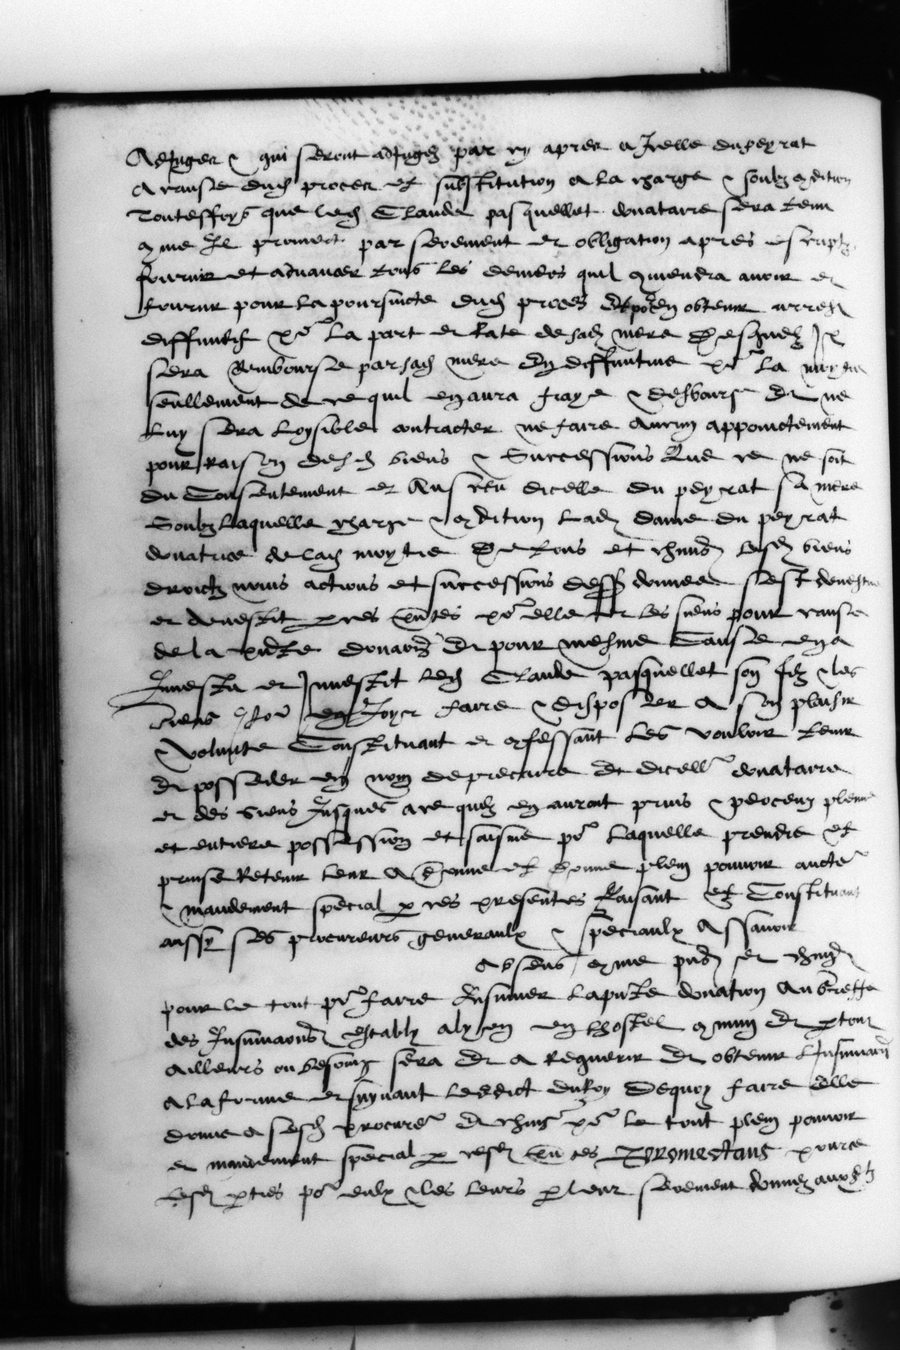 Adjuger & qui seront adjugez par cy apres a Icelle du peyrat
a cause dudt proces et substitution a la charge & soubz condition
Touteffoys que ledt Claude pasquellet donataire sera tenu
comme Il promect par serement et obligation apres escriptz
fournir et advancer tous les deniers quil conviendra avoir et
fournir pour la poursuicte dudt proces et pour en obtenir arrest
diffinitif pour la part et Rate de sadt mere Desquelz Il
sera Rembourse par sadt mere En diffinitive pour la moytie
seullement de ce quil en aura fraye & desbourse Et ne
luy sera loysible contracter ne faire aucun appoinctement
pour Raison desdt biens & Successions Que ce ne soit
du Consentement et dicelle du peyrat sa mere
Soubz laquelle charge & condition ladt dame du peyrat
donatrice de ladt moytie De tous et chuns lesdt biens
droictz noms actions et successions dess donnee sest devestue
et devestit par ces pntes pour elle et les siens pour cause
de la pnte donaon Et pour mesme Cause en a
Investu et Investit ledt Claude pasquellet son filz & les
siens pour en Joyr faire & disposer a son plaisir
& volunte Constituant et confessant les vouloir tenir
et posseder en nom de precaire et dicelluy donataire
et des siens Jusques a ce quilz en auront prins & perceu pleine
et entiere possession et saisine pour laquelle prendre et
prinse Retenir leur a donne et donne plein pouvoir aucte
& mandement special par ces presentes faisant et Constituant
aussy ses procureurs generaulx & speciaulx Assavoir
absens comme pns et chung
pour le tout pour faire Insinuer la pnte donation Au greffe
des Insinuaons estably a lyon en lhostel commun et partout
ailleurs ou besoing sera et a Requerir et obtenir lInsinuaon
a la forme et suyvant ledict du Roy De quoy faire elle
donne a sesdt procureurs et chung pour le tout plein pouvoir
et mandement special par cesdt pntes Promectans
lesdt parties pour eulx & les leurs par leur serement donnez